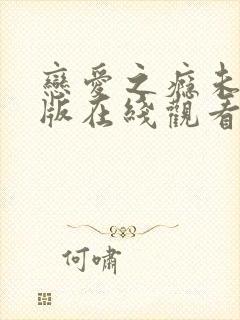 戀愛之癮未
版在綫觀看
何嘯